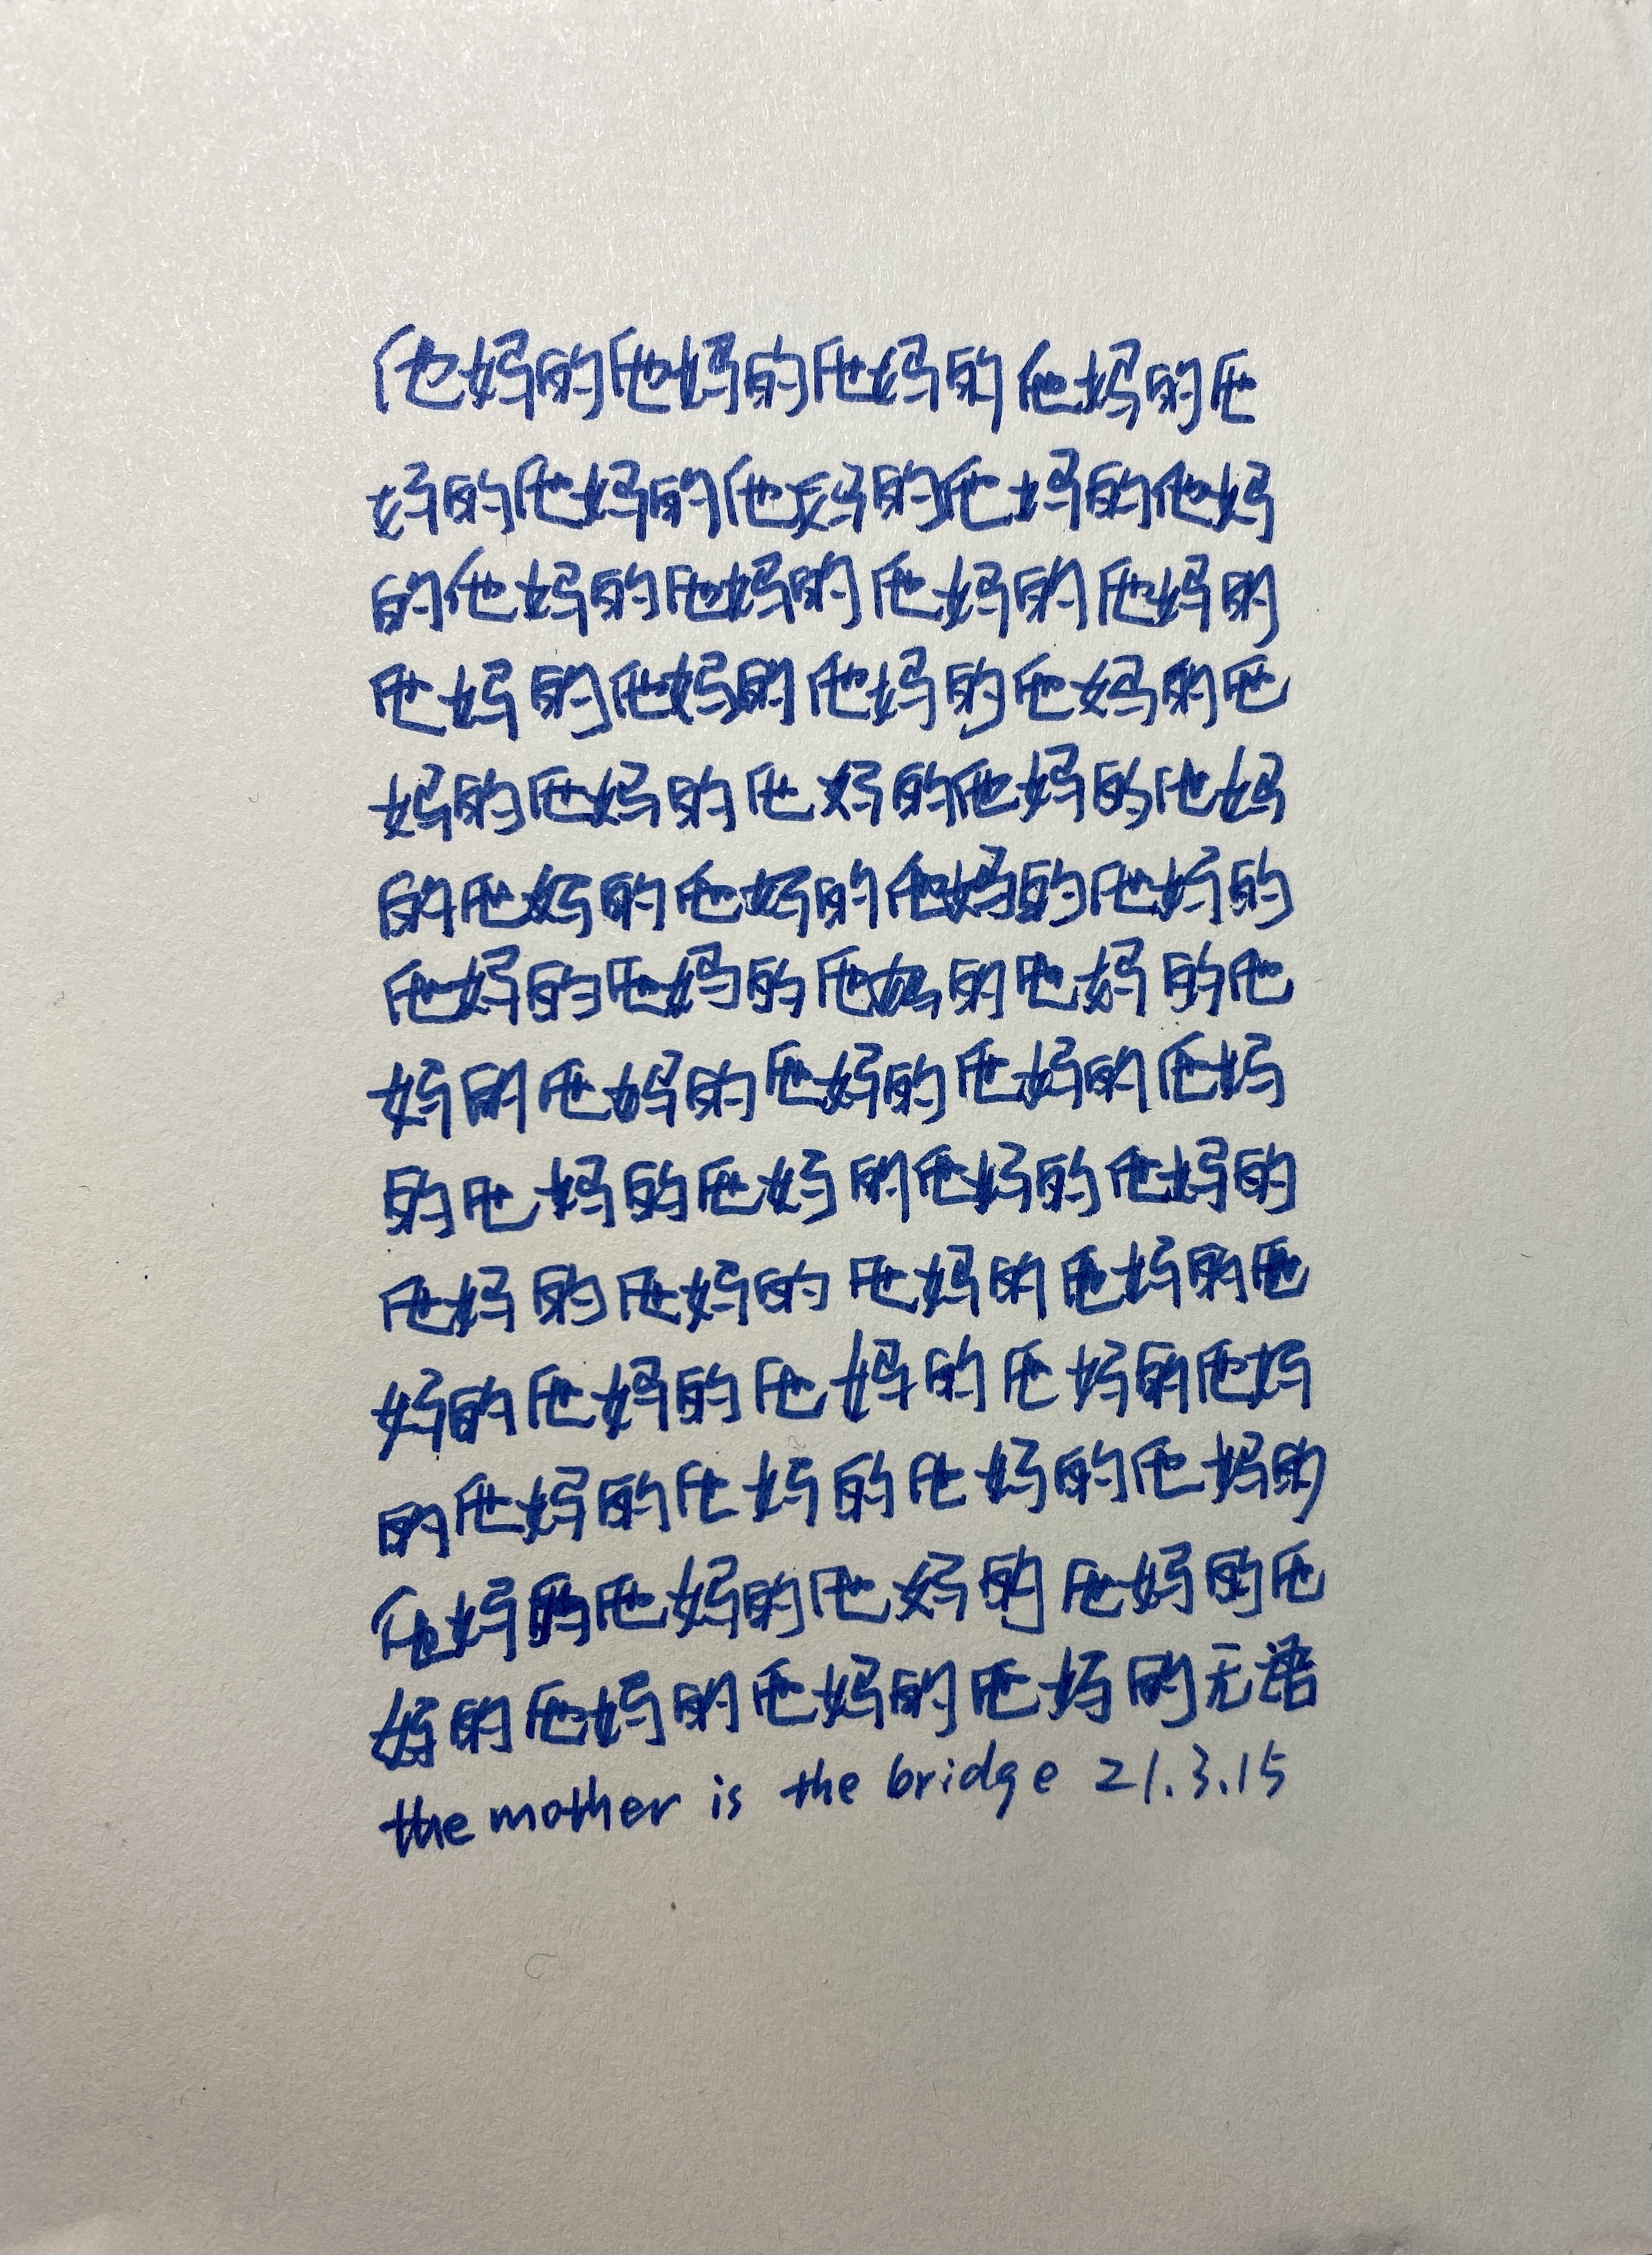 他妈的他妈的他妈的他妈的他
妈的他妈的他妈的他妈的他妈
的他妈的他妈的他妈的他妈的
他妈的他妈的他妈的他妈的他
妈的他妈的他妈的他妈的他妈
的他妈的他妈的他妈的他妈的
他妈的他妈的他妈的他妈的他
妈的他妈的他妈的他妈的他妈
的他妈的他妈的他妈的他妈的
他妈的他妈的他妈的他妈的他
妈的他妈的他妈的他妈的他妈
的他妈的他妈的他妈的他妈的
他妈的他妈的他妈的他妈的他
妈的他妈的他妈的他妈的无语
the mother is the bridge 21.3.15